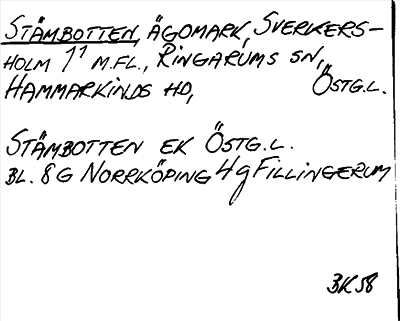 STÄMBOTTEN, ÄGOMARK, SVERKERS-
HOLM 1¹ M.FL., RINGARUMS SN,
HAMMARKINDS HD, ÖSTG.L.
STÄMBOTTEN EK ÖSTG.L.
BL. 8G NORRKÖPING 4g FILLINGERUM
BK 58